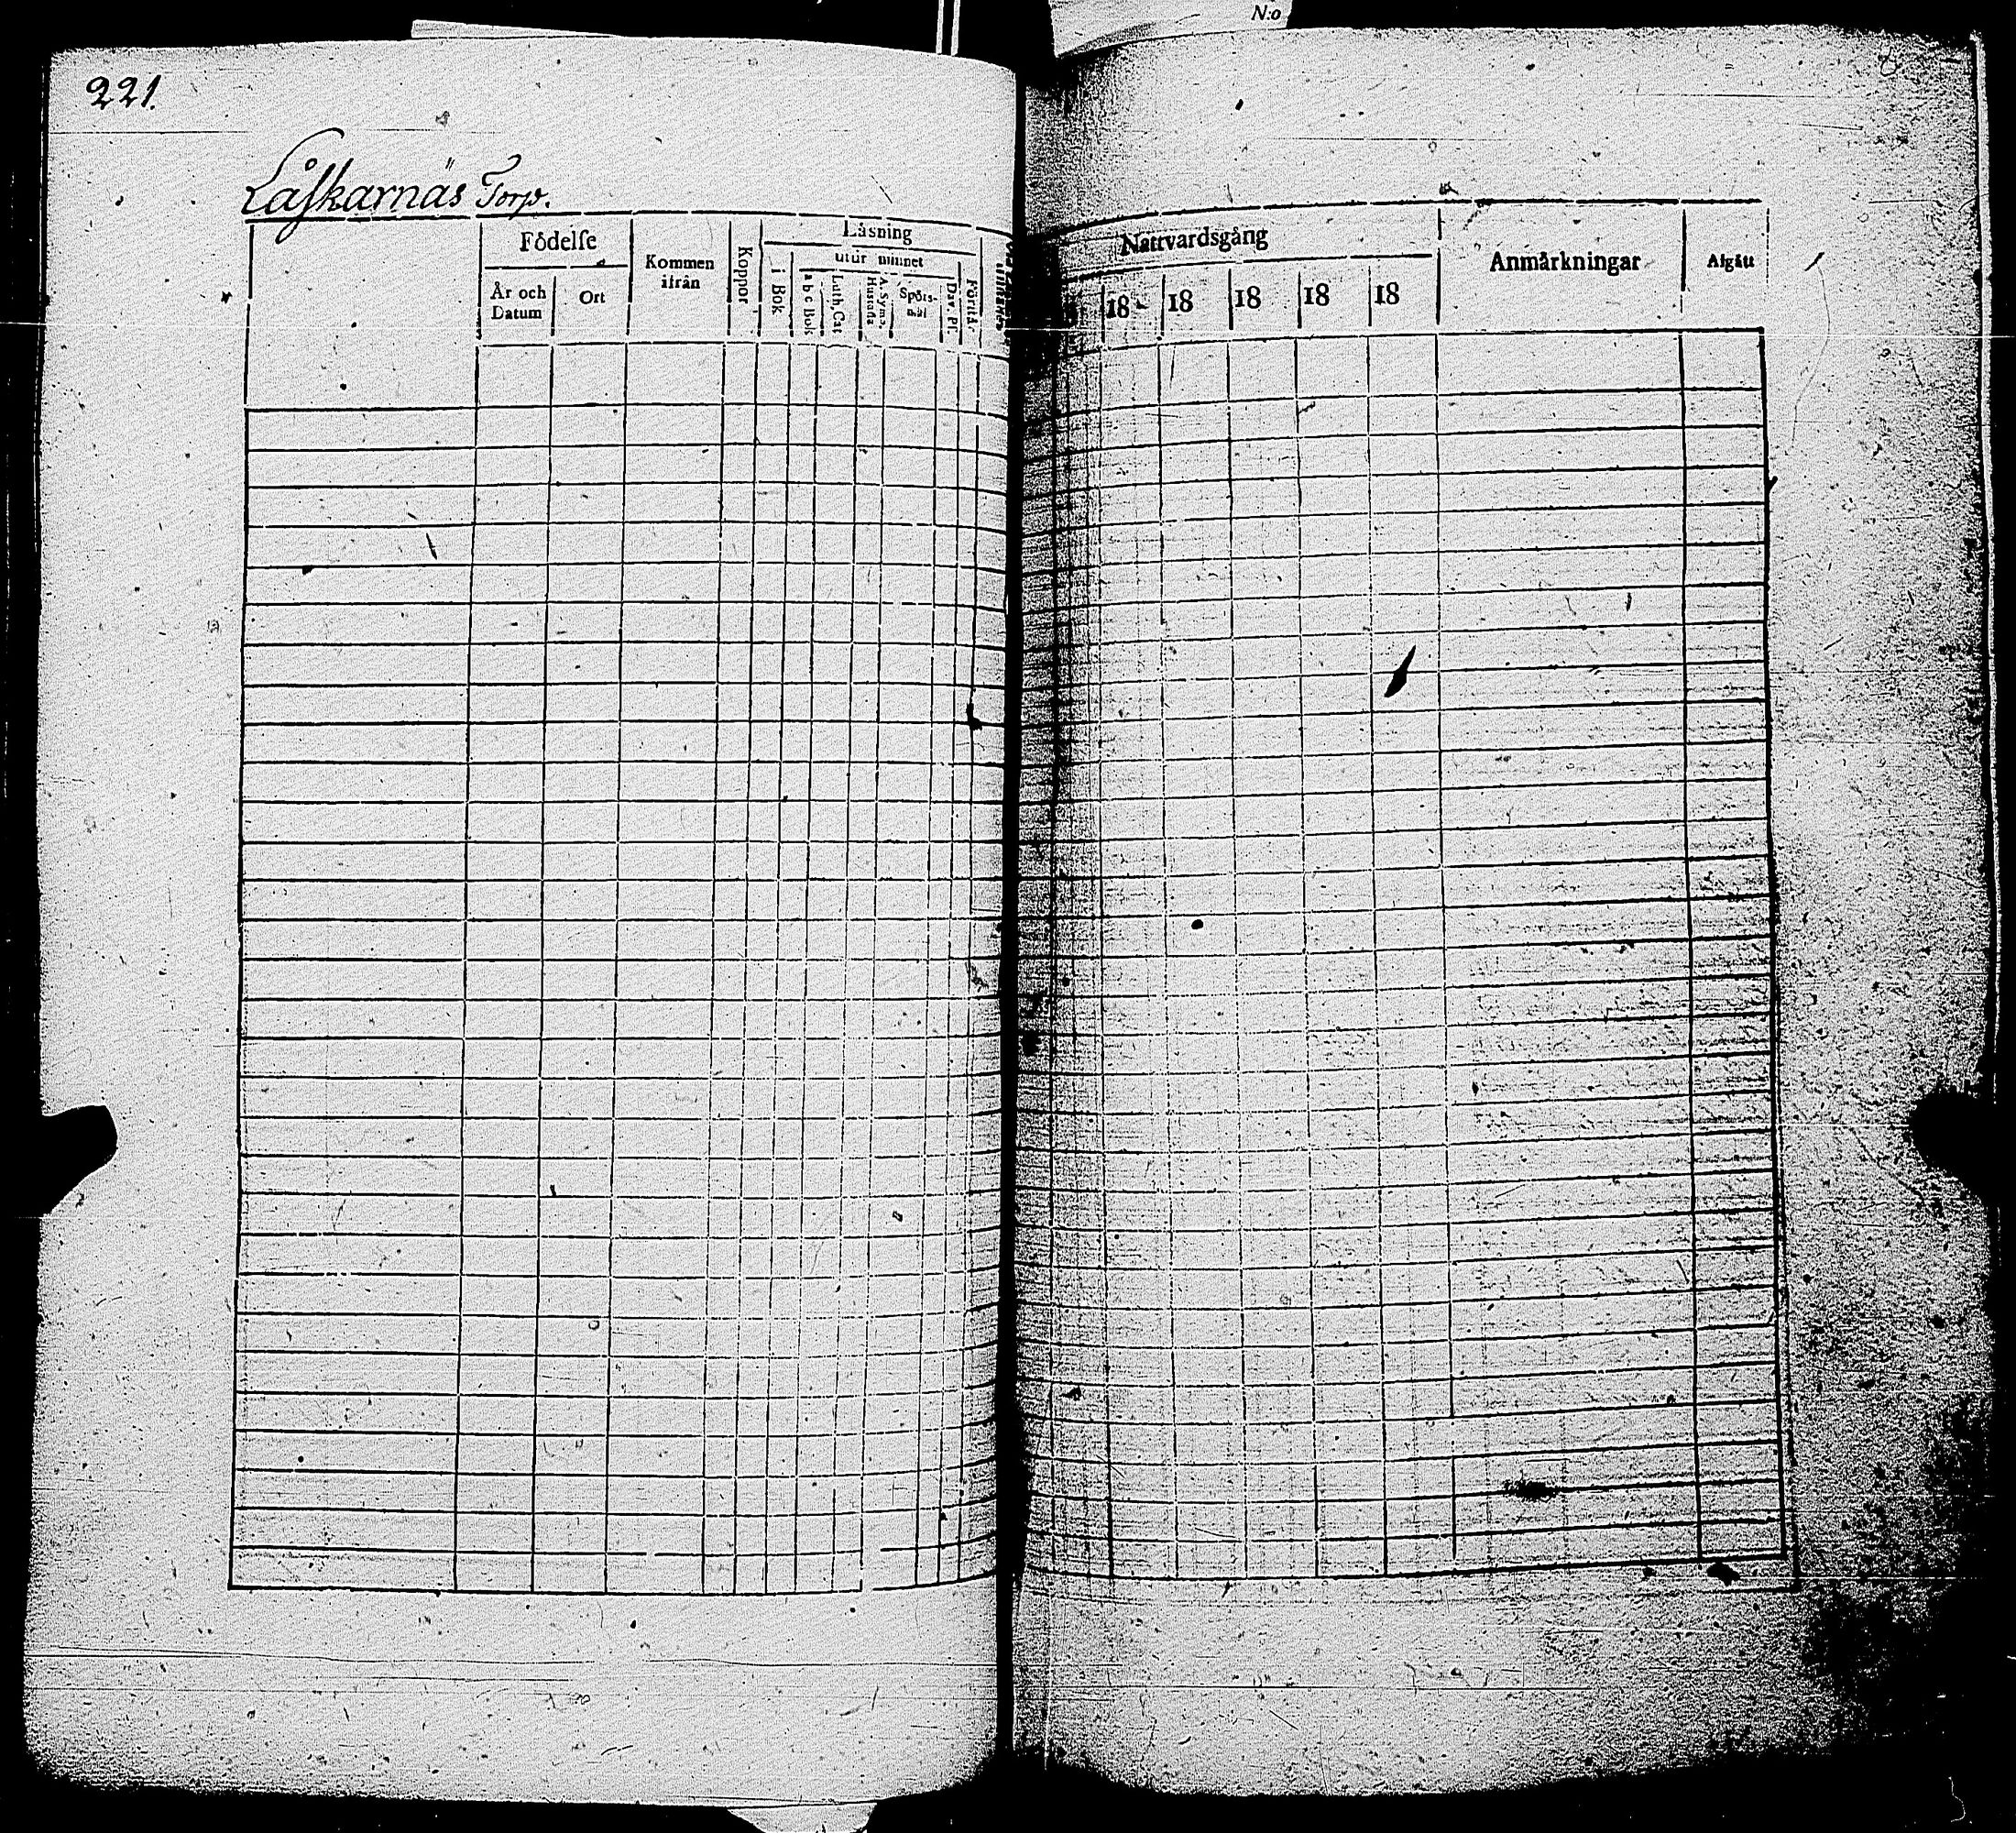 N:o
221.
Låſkarnäs Torp.
Födelſe
År och Datum
Ort
Kommen ifrån
Koppor
Läsning
i Bok
utur minnet
a b c Bok
Luth. Cat
A. Symb. Hustafla
Spörs-mål
Dav. Pſ.
Förſtår
Nattvardsgång
18
18
18
18
18
Anmärkningar
Afgått